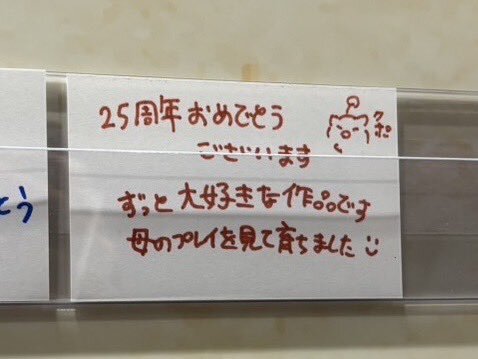 25周年おめでとう
ございます
クポ
ずっと大好きな作品です
母のプレイを見て育ちました
とう